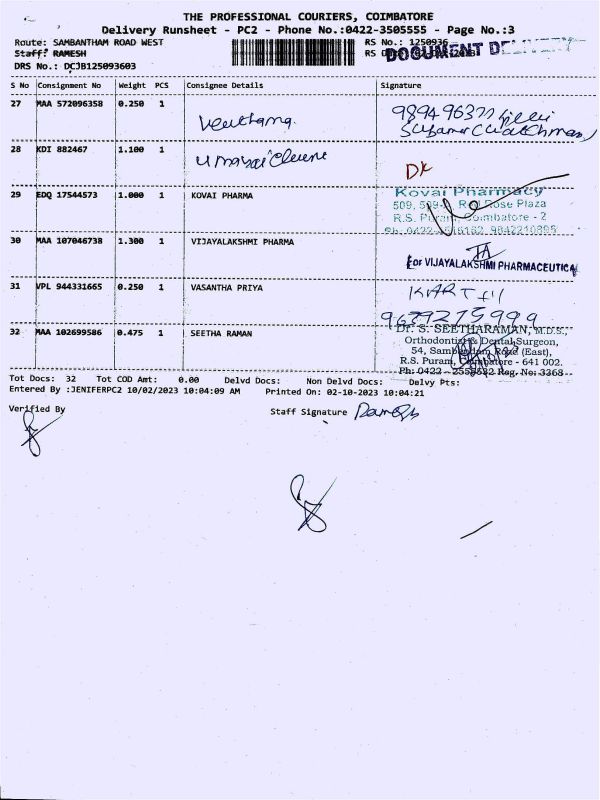 THE PROFESSIONAL COURIERS, COIMBATORE
Delivery Runsheet - PC2 - Phone No.:0422-3505555 - Page No.:3
Route: SAMBANTHAM ROAD WEST RS No.: 1250936
Staff: RAMESH RS DOCUMENT
DRS No.: DCJB125093603
S No Consignment No Weight PCS Consignee Details Signature
27 MAA 572096358 0.250 1
28 KDI 882467 1.100 1
29 EDQ 17544573 1.000 1 KOVAI PHARMA Kovai Pharmacy
509, Rose Plaza
R.S. Puram, Coimbatore - 2
30 MAA 107046738 1.300 1 VIJAYALAKSHMI PHARMA
For VIJAYALAKSHMI PHARMACEUTICA
31 VPL 944331665 0.250 1 VASANTHA PRIYA KARTHI
9679275999
32 MAA 102699586 0.475 1 SEETHA RAMAN Dr. S. SEETHARAMAN, M.D.S.,
Orthodontist & Dental Surgeon,
54, Sambandam Road (East),
R.S. Puram, Coimbatore - 641 002.
Ph: 0422 - Reg. No: 3368
Tot Docs: 32 Tot COD Amt: 0.00 Delvd Docs: Non Delvd Docs: Delvy Pts:
Entered By :JENIFERPC2 10/02/2023 10:04:09 AM Printed On: 02-10-2023 10:04:21
Verified By Staff Signature